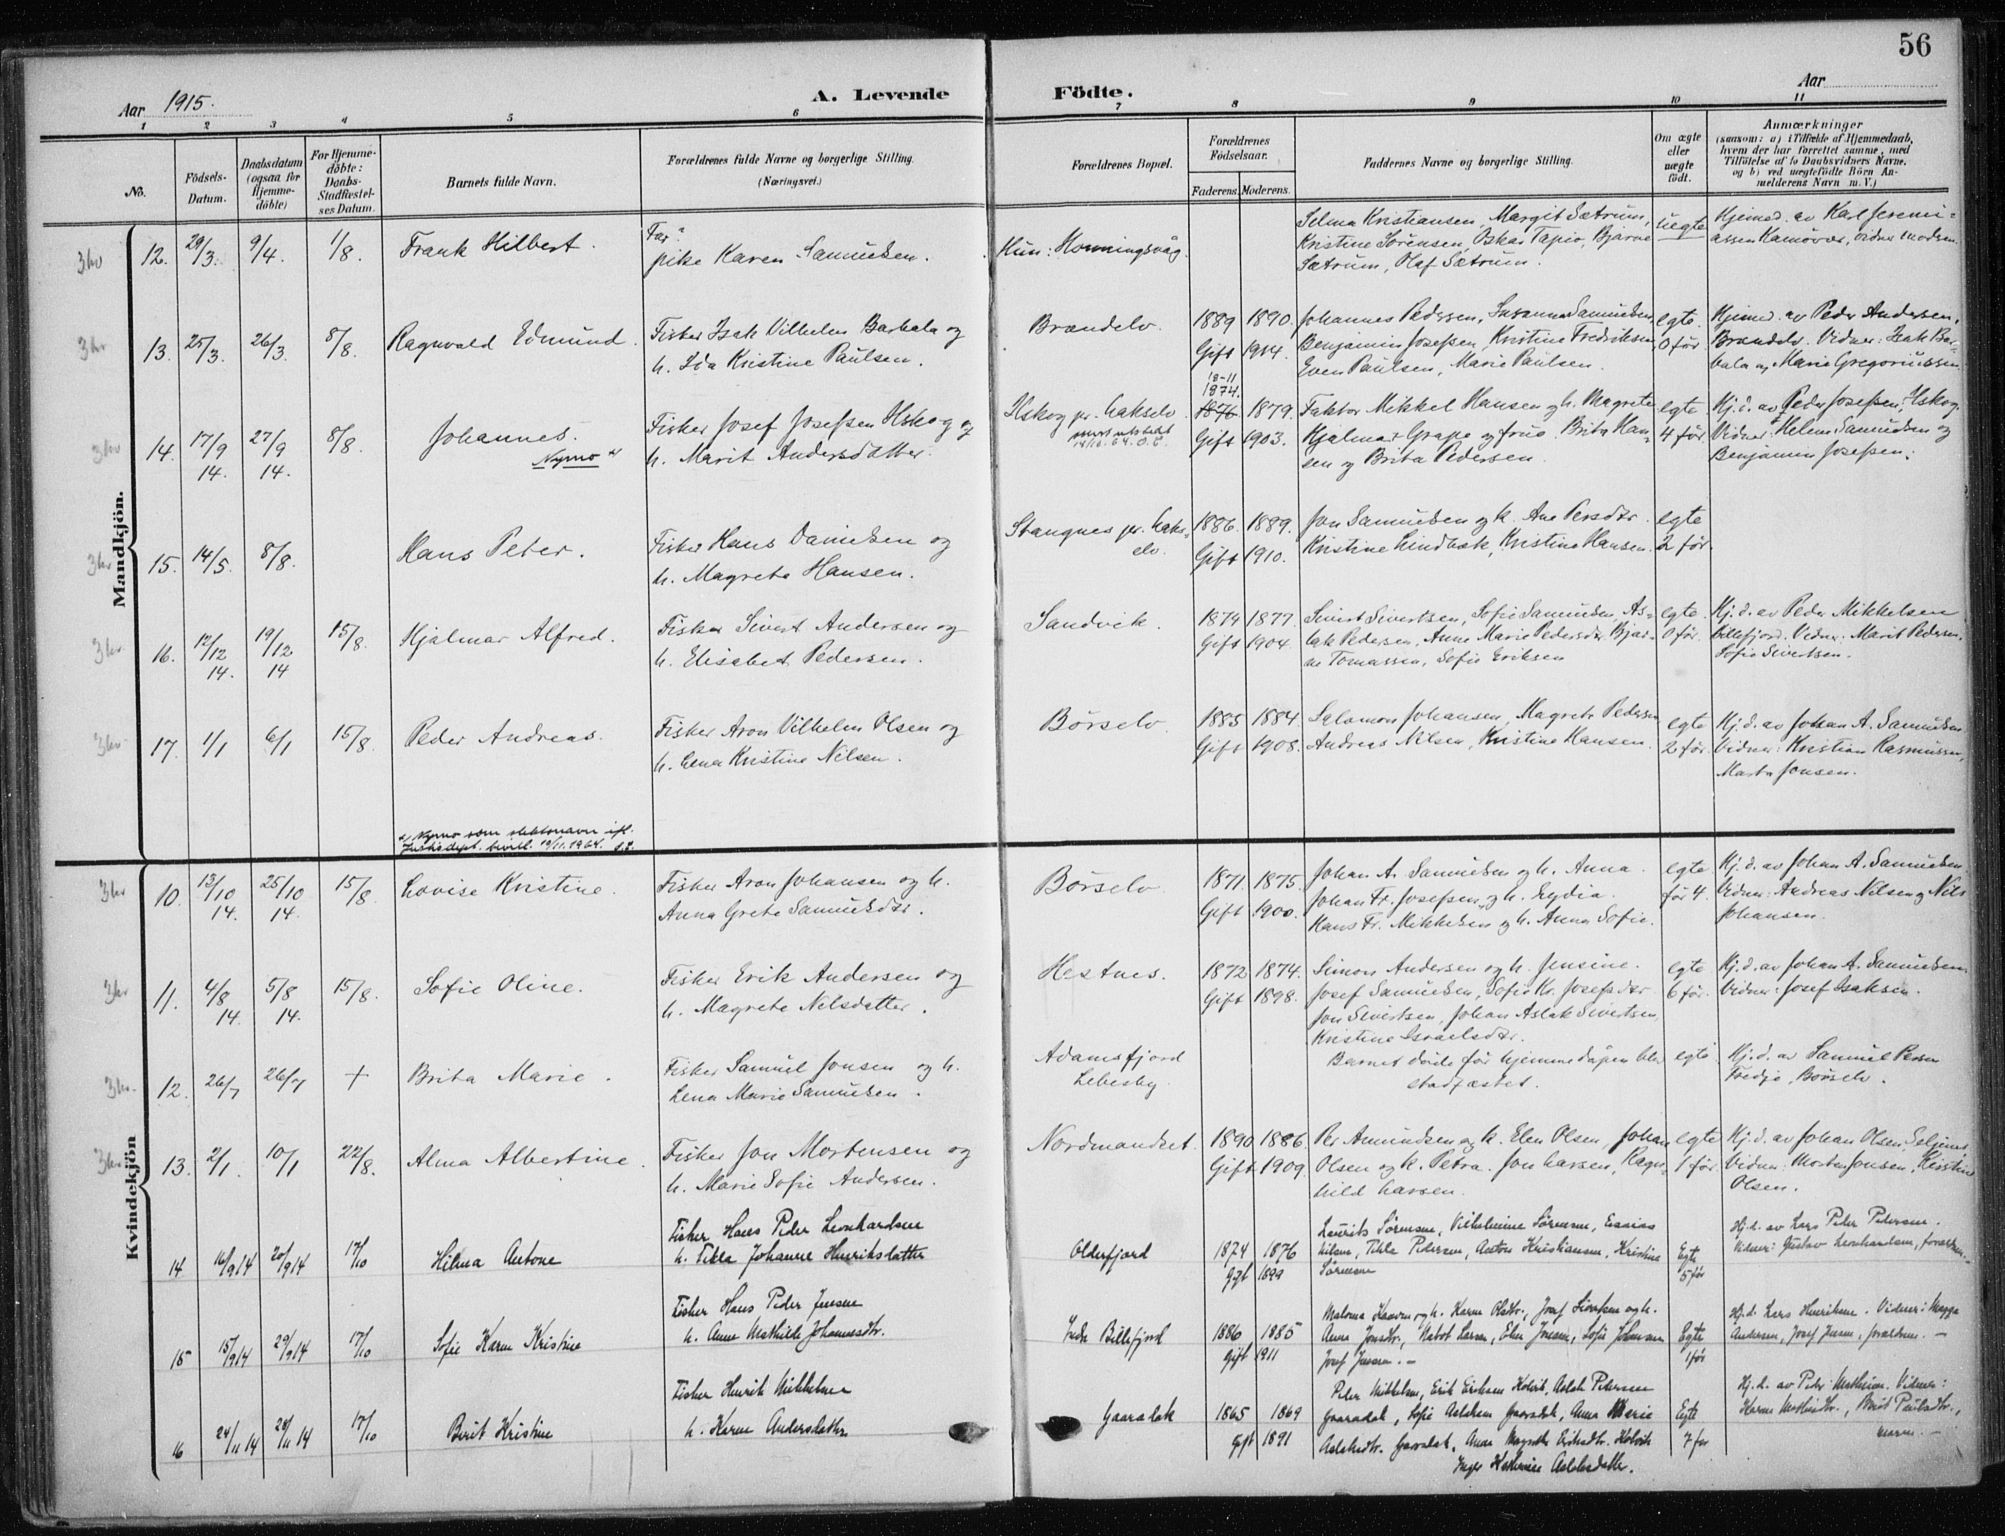 56
Aar 1915.
A. Levende Födte.
Aar
1 2 3 4 5 6 7 8 9 10 11
No.
Födsels-
Datum.
Daabsdatum
(ogsaa för
Hjemme-
döbte)
For Hjemme-
döbte:
Daabs-
Stadfæstel-
ses Datum.
Barnets fulde Navn.
Forældrenes fulde Navne og borgerlige Stilling.
(Næringsvei.)
Forældrenes Bopæl.
Forældrenes
Födselsaar.
Faderens. Moderens.
Faddernes Navne og borgerlige Stilling.
Om ægte
eller
uægte
födt.
Anmærkninger
(saasom: a) i Tilfælde af Hjemmedaab,
hvem der har forrettet samme, med
Tilföielse af to Daabsvidners Navne,
og b) ved uægtefödte Börn An-
melderens Navn m. V.)
Mandkjön.
12. 29/3. 9/4. 1/8. Frank Hilbert.
Far:
pike Karen Samuelsen.
Hun: Honningsvåg.
Selma Kristiansen, Margit Sætrum,
Kristine Sørensen, Oskar Tapio, Bjarne
Sætrum, Olaf Sætrum.
uegte
Hjemd. av Karl Jeremi-
assen Kamøvær, vidner modsen.
13. 25/3. 26/3. 8/8. Ragnvald Edmund.
Fisker Isak Vilhelm Barbala og
h. Ida Kristine Paulsen.
Brændelv.
1889 1890.
Gift 1914.
Johannes Pedersen, Susanna Samuelsen,
Benjamin Josefsen, Kristine Fredriksen,
Even Paulsen, Marie Paulsen.
egte.
0 før.
Hjemd. av Peder Andersen,
Brændelv. Vidner: Isak Bar-
bala og Marie Gregoriussen.
14. 17/9 14. 27/9 14. 8/8. Johannes.
Nymo x)
Fisker Josef Josefsen Uskog og
h. Marit Andersdatter.
Uskog pr. Lakselv
18-11
1874.
1876 1879.
Gift 1903.
Faktor Mikkel Hansen og h. Magrete
Hjalmar Grape og frue. Brita Han-
sen og Brita Pedersen.
egte
4 før.
Hj.d. av Peder Josefsen, Uskog.
Vidner: Helene Samuelsen og
Benjamin Josefsen.
15. 14/5. 8/8. Hans Peter.
Fisker Hans Danielsen og
h. Magrete Hansen.
Stangnes pr. Laks-
elv.
1886. 1889.
Gift 1910.
Jon Samuelsen og h. Ane Persdtr.
Kristine Lindbæk, Kristine Hansen.
egte
2 før.
16. 12/12 14. 19/12 14 15/8. Hjalmar Alfred.
Fisker Sivert Andersen og
h. Elisabet Pedersen.
Sandvik.
1874 1877.
Gift 1904.
Sivert Sivertsen, Sofie Samuelsen, As-
lak Pedersen, Anne Marie Pedersdtr. Bjar-
ne Tomassen, Sofie Eriksen
egte
0 før.
Hj.d. av Peder Mikkelsen
Billefjord. Vidner: Marit Pedersen,
Sofie Sivertsen.
17. 1/1 6/1 15/8. Peder Andreas.
Fisker Aron Vilhelm Olsen og
h. Lena Kristine Nilsen.
Børselv.
1885 1884.
Gift 1908.
Salomon Johansen, Magrete Pedersen
Andreas Nilsen, Kristine Hansen.
egte
2 før.
Hj.d. av Johan A. Samuelsen
Vidner: Kristian Rasmussen,
Marta Jonsen.
x) Nymo som slektsnavn ifl.
Justisdept. bevill. 19/11.1964.
Kvindekjön
10. 13/10 14. 25/10 14. 15/8. Lovise Kristine.
Fisker Aron Johansen og h.
Anna Grete Samuelsdtr.
Børselv
1871. 1875.
Gift 1900.
Johan A. Samuelsen og h. Anna.
Johan Fr. Josefsen og h. Lydia.
Hans Fr. Mikkelsen og h. Anna Sofie.
egte
før 4.
Hj.d. av Johan A. Samuelsen
Vidner: Andreas Nilsen og Nils
Johansen.
11. 4/8 14. 5/8 14. 15/8. Sofie Oline.
Fisker Erik Andersen og
h. Magrete Nilsdatter.
Hestnes.
1872 1874.
Gift 1898.
Simon Andersen og h. Jensine.
Josef Samuelsen, Sofie Kr. Josefsdtr.
Jon Sivertsen, Johan Aslak Sivertsen,
Kristine Israelsdtr.
egte
6 før.
Hj.d. av Johan A. Samuelsen.
Vidner: Josef Isaksen.
12. 26/7 26/7 + Brita Marie.
Fisker Samuel Jonsen og h.
Lena Marie Samuelsen.
Adamsfjord
Lebesby.
Barnet døde før hjemmedåpen blev
stadfæstet.
egte.
Hj.d. av Samuel Persen
Tredje, Børselv.
13. 2/1. 10/1 22/8. Alma Albertine.
Fisker Jon Mortensen og
h. Marie Sofie Andersen.
Nordmandset.
1890. 1886.
Gift 1909.
Per Amundsen og h. Elen Olsen, Johan
Olsen og h. Petra. Jon Larsen, Ragn-
hild Larsen.
egte
1 før.
Hj.d. av Johan Olsen,
Vidner: Morten Jonsen, Kristine
Olsen.
14 16/9 14 20/9 14 17/10 Hilma Antone
Fisker Hans Peder Leonhardsen
h. Tekla Johanne Henriksdatter
Olderfjord
1874 1876
Gift 1899
Laurits Sørensen, Vilhelmine Sørensen, Esaias
Nilsen, Tekla Pedersen, Anton Kristiansen, Kristine
Sørensen
Egte
5 før
Hj.d. av Lars Peder Pedersen.
Vidner: Gustav Leonhardsen, forældren.
15 15/9 14 29/9 14 17/10 Sofie Karen Kristine
Fisker Hans Peder Jensen
h. Anne Mathilde Johannesdtr.
Indre Billefjord
1886 1885
Gift 1911
Anna Jonsdtr., Nabot Larsen, Elen Jonsen, Sofie Johnsen
Josef Jensen. –
Egte
1 før
Hj.d. Lars Henriksen. Vidner: Magga
Andersen, Josef Jensen, forældren. –
16 24/11 14 28/11 14 17/10 Berit Kristine
Fisker Henrik Mikkelsen
h. Karen Andersdatter
Gaaradak
1865 1869
Gift 1891
Peder Mikkelsen, Erik Eriksen Kolvik, Aslak Pedersen
Gaaradak, Sofie Aslaksen Gaaradak, Anna Marie
Aslaksdtr. Gaaradak, Anne Magrethe Eriksdtr. Kolvik
Inger Kathrine Aslaksdatter.
Egte
7 før
Hj.d. av Peder Mathisen. Vidner:
Karen Mathisdtr., Berit Paulsdtr.,